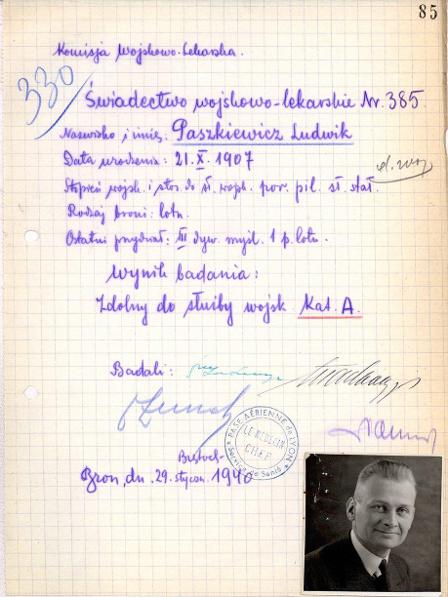 85
Komisja Wojskowo-Lekarska.
330
Świadectwo wojskowo-lekarskie Nr. 385.
Nazwisko i imię: Paszkiewicz Ludwik
Data urodzenia: 21. X. 1907
d. woj
Stopień wojsk. i stos. do sł. wojsk. por. pil. sł. stał.
Rodzaj broni: lotn.
Ostatni przydział: III dyw. myśl. 1 p. lotn.
Wynik badania:
Zdolny do służby wojsk. Kat. A.
Badali:
BASE AÉRIENNE de LYON
LE MÉDECIN
CHEF
Service de Santé
Bron, dn. 29. styczn. 1940